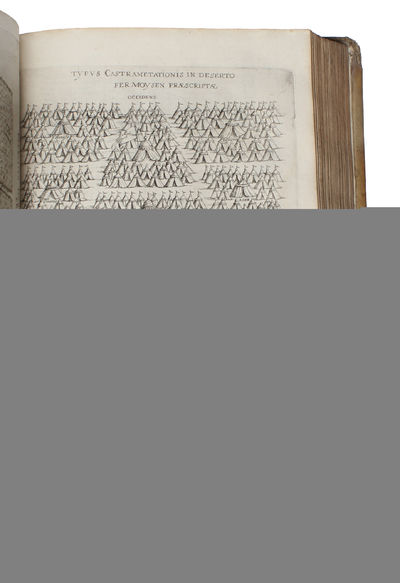 TYPVS CASTRAMETATIONIS IN DESERTO
PER MOYSEN PRÆSCRIPTÆ
OCCIDENS